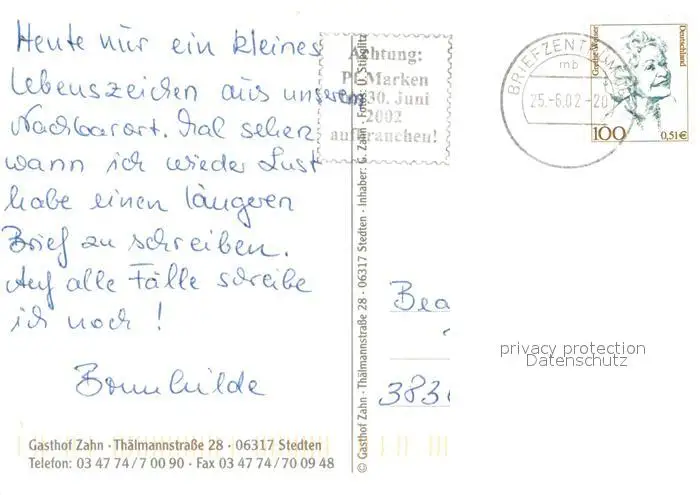 Heute nur ein kleines
Lebenszeichen aus unserem
Nachbarort. Mal sehen
wann ich wieder Lust
habe einen längeren
Brief zu schreiben.
Auf alle Fälle schreibe
ich noch!
Brunhilde
Gasthof Zahn · Thälmannstraße 28 · 06317 Stedten
Telefon: 03 47 74 / 7 00 90 · Fax 03 47 74 / 70 09 48
© Gasthof Zahn · Thälmannstraße 28 · 06317 Stedten · Inhaber: G. Zahn · Foto: U. Stieglitz
Achtung:
Pf-Marken
30. Juni
2002
aufbrauchen!
BRIEFZENTRUM 06
mb
25.-6.02-20
Grethe Weiser
Deutschland
100
0,51€
Bea
383
privacy protection
Datenschutz